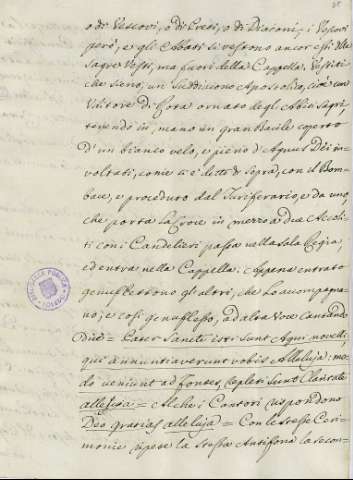 o di Vescovi, o di Preti, o di Diaconi, i Vescovi
però, e gli Abbati si vestono ancor essi delle
Sagre Vesti, ma fuori della Cappella. Vestiti
che sieno, un Suddiacono Apostolico, cioè un
Uditore di Rota ornato degli Abiti Sagri,
tenendo in mano un gran Bacile coperto
d'un bianco velo, e pieno d'Agnus Dei in-
voltati, come si è detto di sopra, con il Bom-
bace, e preceduto dal Turiferario, e da uno,
che porta la Croce in mezzo a due Accoli-
ti con i Candelieri passa nella Sala Regia,
ed entra nella Cappella: Appena entrato
genuflettono gli altri, che lo accompagna-
no, e così genuflesso, ad alta Voce cantando
dice = Pater Sancte isti sunt Agni novelli,
qui annuntiaverunt vobis Alleluja: mo-
do veniunt ad Fontes, repleti sunt Claritate
alleluja = Al che i Cantori rispondono
Deo gratias alleluja = Con le stesse Ceri-
monie ripete la stessa Antifona la secon-